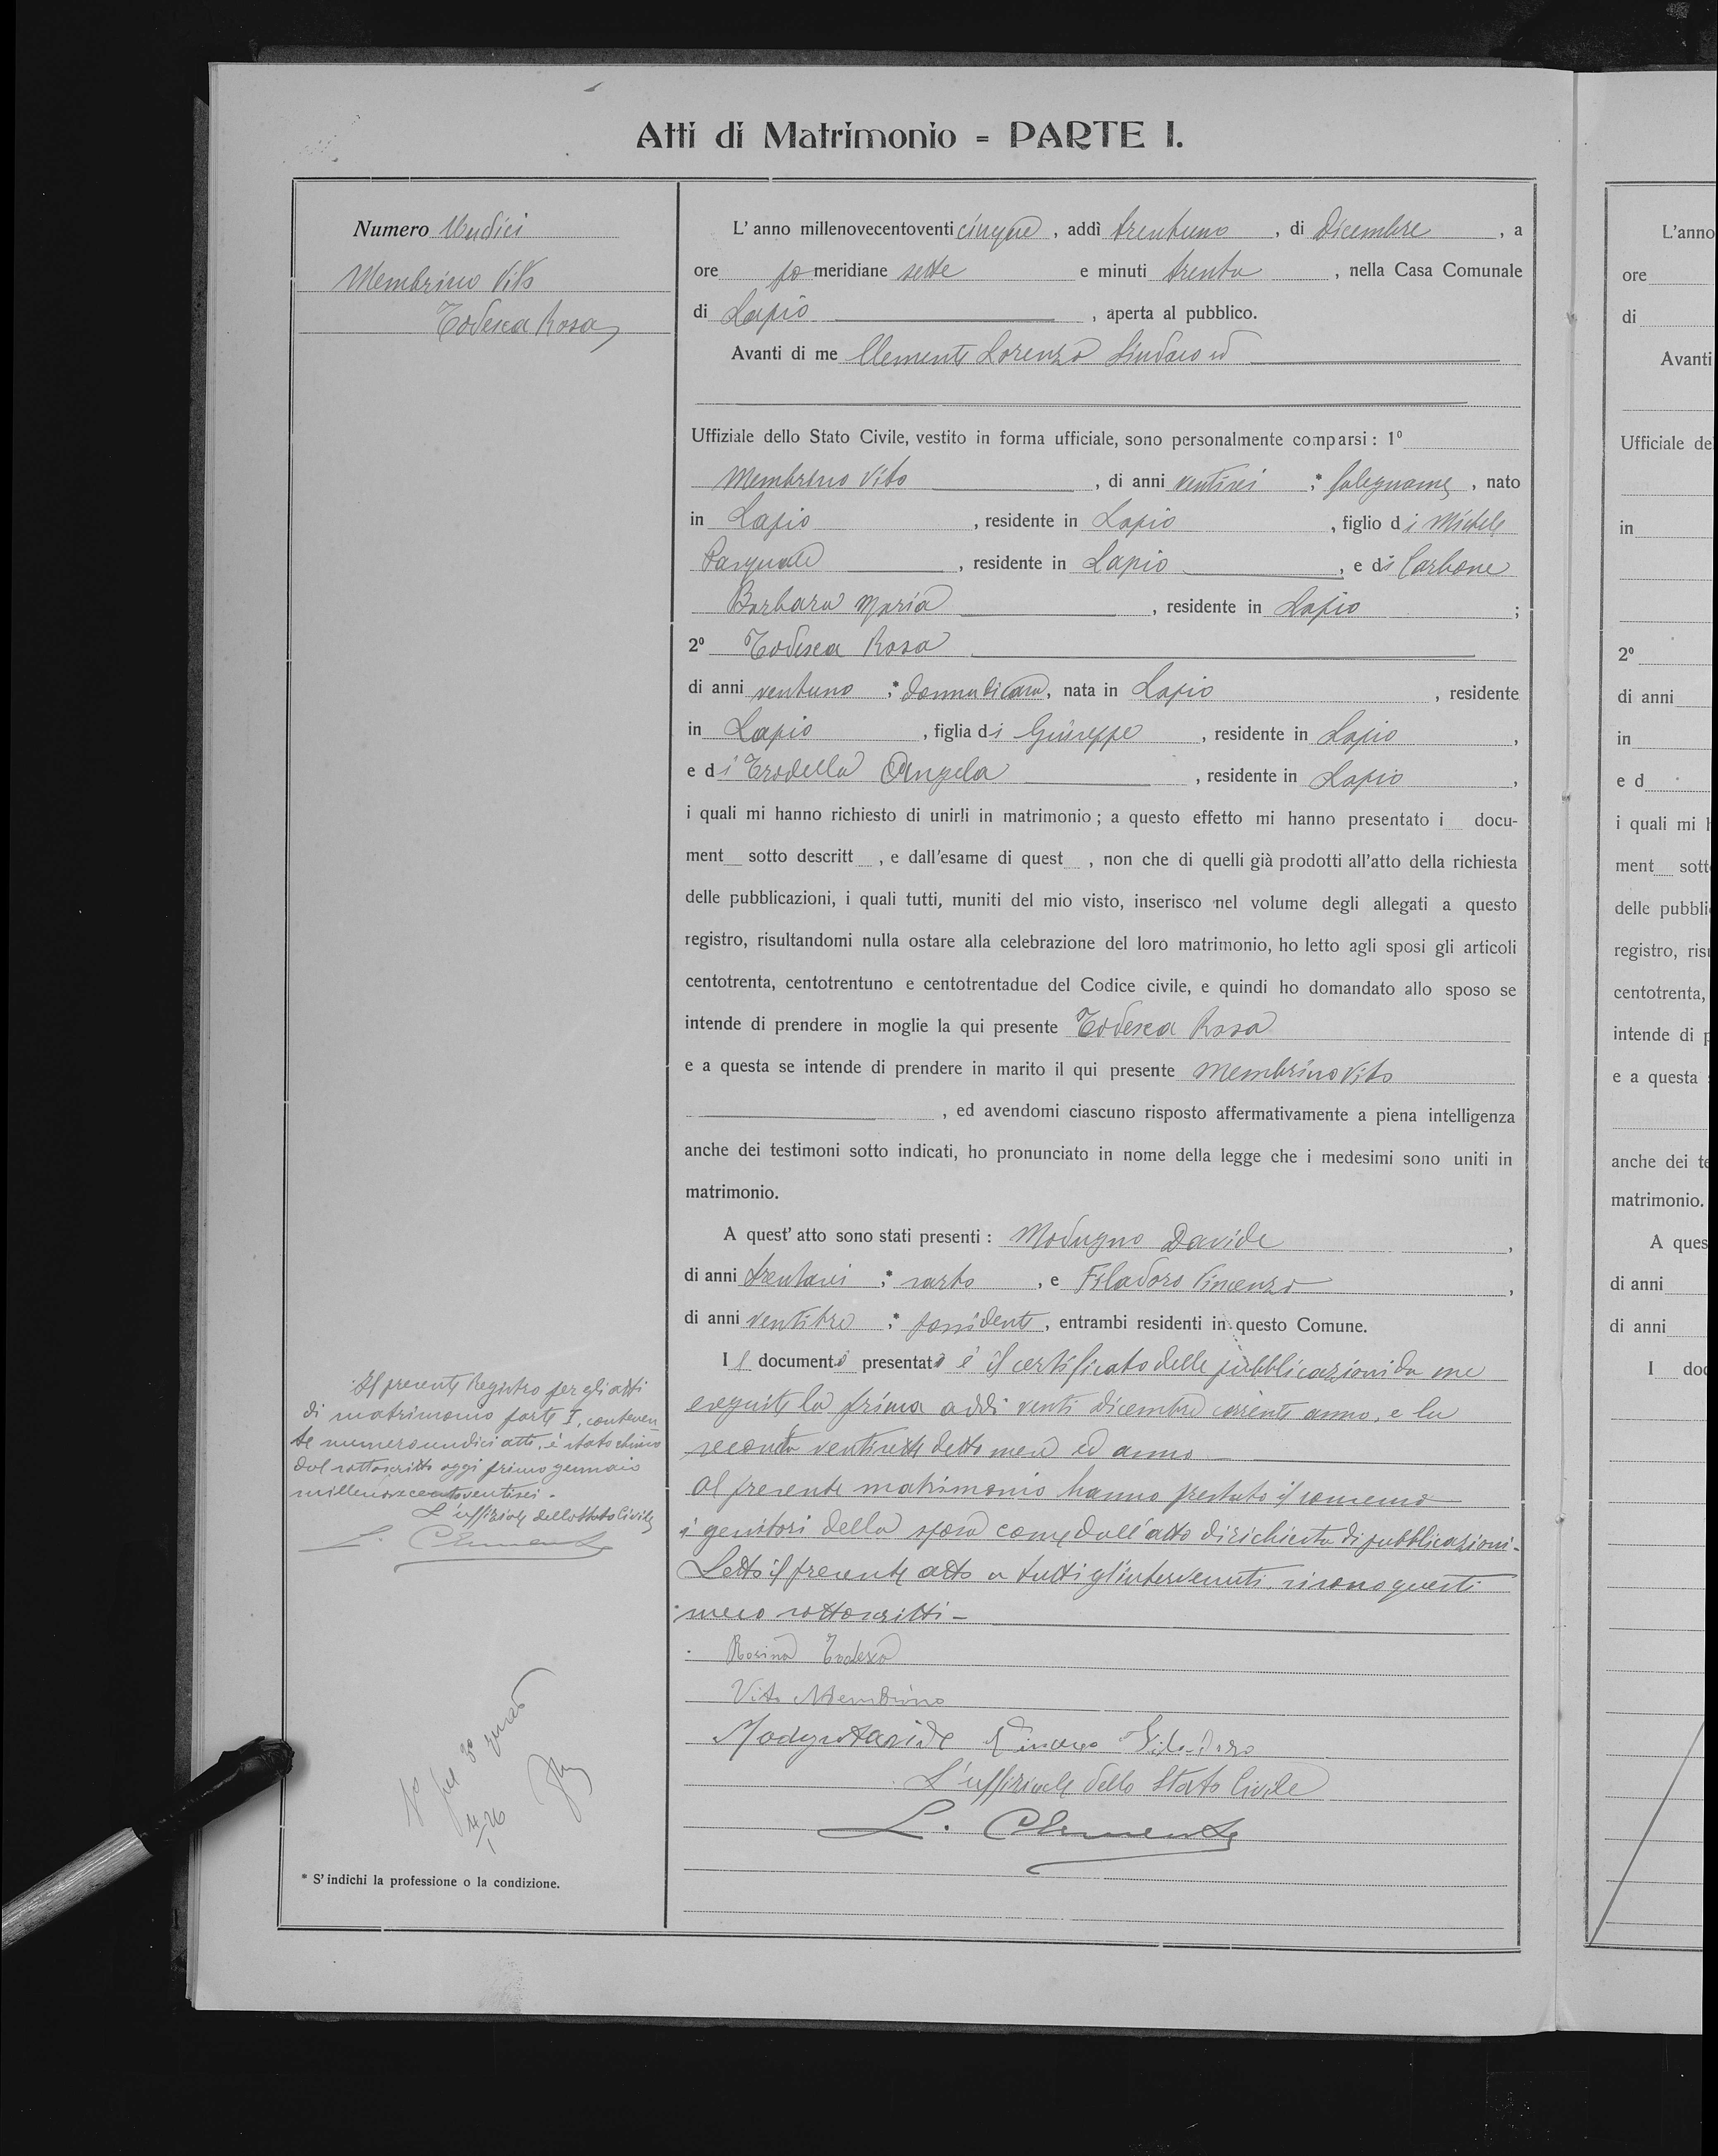 Atti di Matrimonio = PARTE I.
Numero Undici
Membrino Vito
Todesca Rosa
L' anno millenovecentoventi cinque, addì trentuno, di Dicembre, a
ore pomeridiane sette e minuti trenta, nella Casa Comunale
di Lapio, aperta al pubblico.
Avanti di me Clemente Lorenzo Sindaco ed
Uffiziale dello Stato Civile, vestito in forma ufficiale, sono personalmente comparsi: 1º
Membrino Vito, di anni ventisei;* falegname, nato
in Lapio, residente in Lapio, figlio di Michele
Pasquale, residente in Lapio, e di Carbone
Barbara Maria, residente in Lapio;
2º Todesca Rosa
di anni ventuno;* donna di casa, nata in Lapio, residente
in Lapio, figlia di Giuseppe, residente in Lapio,
e di Trodella Angela, residente in Lapio,
i quali mi hanno richiesto di unirli in matrimonio; a questo effetto mi hanno presentato i docu-
ment sotto descritt , e dall'esame di quest , non che di quelli già prodotti all'atto della richiesta
delle pubblicazioni, i quali tutti, muniti del mio visto, inserisco nel volume degli allegati a questo
registro, risultandomi nulla ostare alla celebrazione del loro matrimonio, ho letto agli sposi gli articoli
centotrenta, centotrentuno e centotrentadue del Codice civile, e quindi ho domandato allo sposo se
intende di prendere in moglie la qui presente Todesca Rosa
e a questa se intende di prendere in marito il qui presente Membrino Vito
, ed avendomi ciascuno risposto affermativamente a piena intelligenza
anche dei testimoni sotto indicati, ho pronunciato in nome della legge che i medesimi sono uniti in
matrimonio.
A quest' atto sono stati presenti: Modugno Davide,
di anni trentasei;* sarto, e Filadoro Vincenzo,
di anni ventitre;* possidente, entrambi residenti in questo Comune.
Il documento presentato è il certificato delle pubblicazioni da me
eseguite la prima addì venti dicembre corrente anno, e la
seconda ventisette detto mese ed anno
Al presente matrimonio hanno prestato il consenso
i genitori della sposa come dall'atto di richiesta di pubblicazioni.
Letto il presente atto a tutti gl'intervenuti, si sono questi
meco sottoscritti -
Rosina Todesca
Vito Membrino
Modugno Davide Vincenzo Filadoro
L'uffiziale dello Stato Civile
L. Clemente
Il presente Registro per gli atti
di matrimonio parte I, contenen
te numero undici atti, è stato chiuso
dal sottoscritto oggi primo gennaio
millenovecentoventisei.
L'uffiziale dello Stato Civile
L. Clemente
* S' indichi la professione o la condizione.
L'anno
ore
di
Avanti
Ufficiale de
in
2º
di anni
in
e d
i quali mi
ment sott
delle pubbli
registro, ris
centotrenta,
intende di
e a questa
anche dei te
matrimonio.
A ques
di anni
di anni
I doc